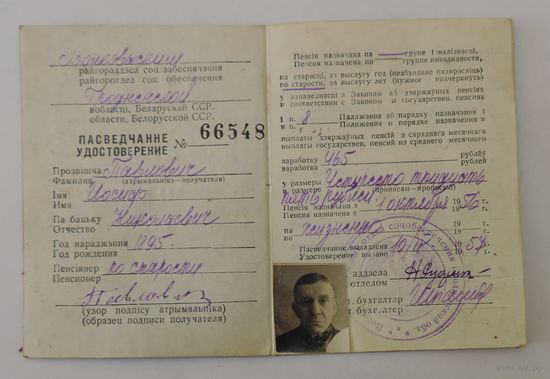 Волковыским
райгораддзел соц забеспячэння
райгоротдел соц обеспечения
Гродненской
вобласці, Беларускай ССР.
области, Белорусской ССР.
ПАСВЕДЧАННЕ
УДОСТОВЕРЕНИЕ № 66548
Прозвішча Павлович
Фамилия (атрымальніка—получателя)
Імя Иосиф
Имя
Па бацьку Николаевич
Отчество
Год нараджэння 1895.
Год рождения
Пенсіянер по старости
Пенсионер
Павлович
(узор подпісу атрымальніка)
(образец подписи получателя)
Пенсія назначана па — групе інваліднасці,
Пенсия назначена по — группе инвалидности,
па старасці, за выслугу год (неабходнае падкрэсліць)
по старости, за выслугу лет (нужное подчеркнуть)
у адпаведнасці з Законам аб дзяржаўных пенсіях
в соответствии с Законом о государствен. пенсиях
і п. 8 Палажэння аб парадку назначэння і
и п. Положения о порядке назначения и
выплаты дзяржаўных пенсій з сярэдняга месячнага
выплаты государствен. пенсий из среднего месячного
заработку 465 рублёў
заработка рублей
у размеры Четыреста тридцать
в размере (прописом—прописью)
пять рублей
Пенсія назначана з 1 октября 1956
Пенсия назначена с
па пожизненно 19
по
Пасведчанне выдадзена 10/IV 1957
Удостоверение выдано
аддзела
отделом
бухгалтар
бухгалтер